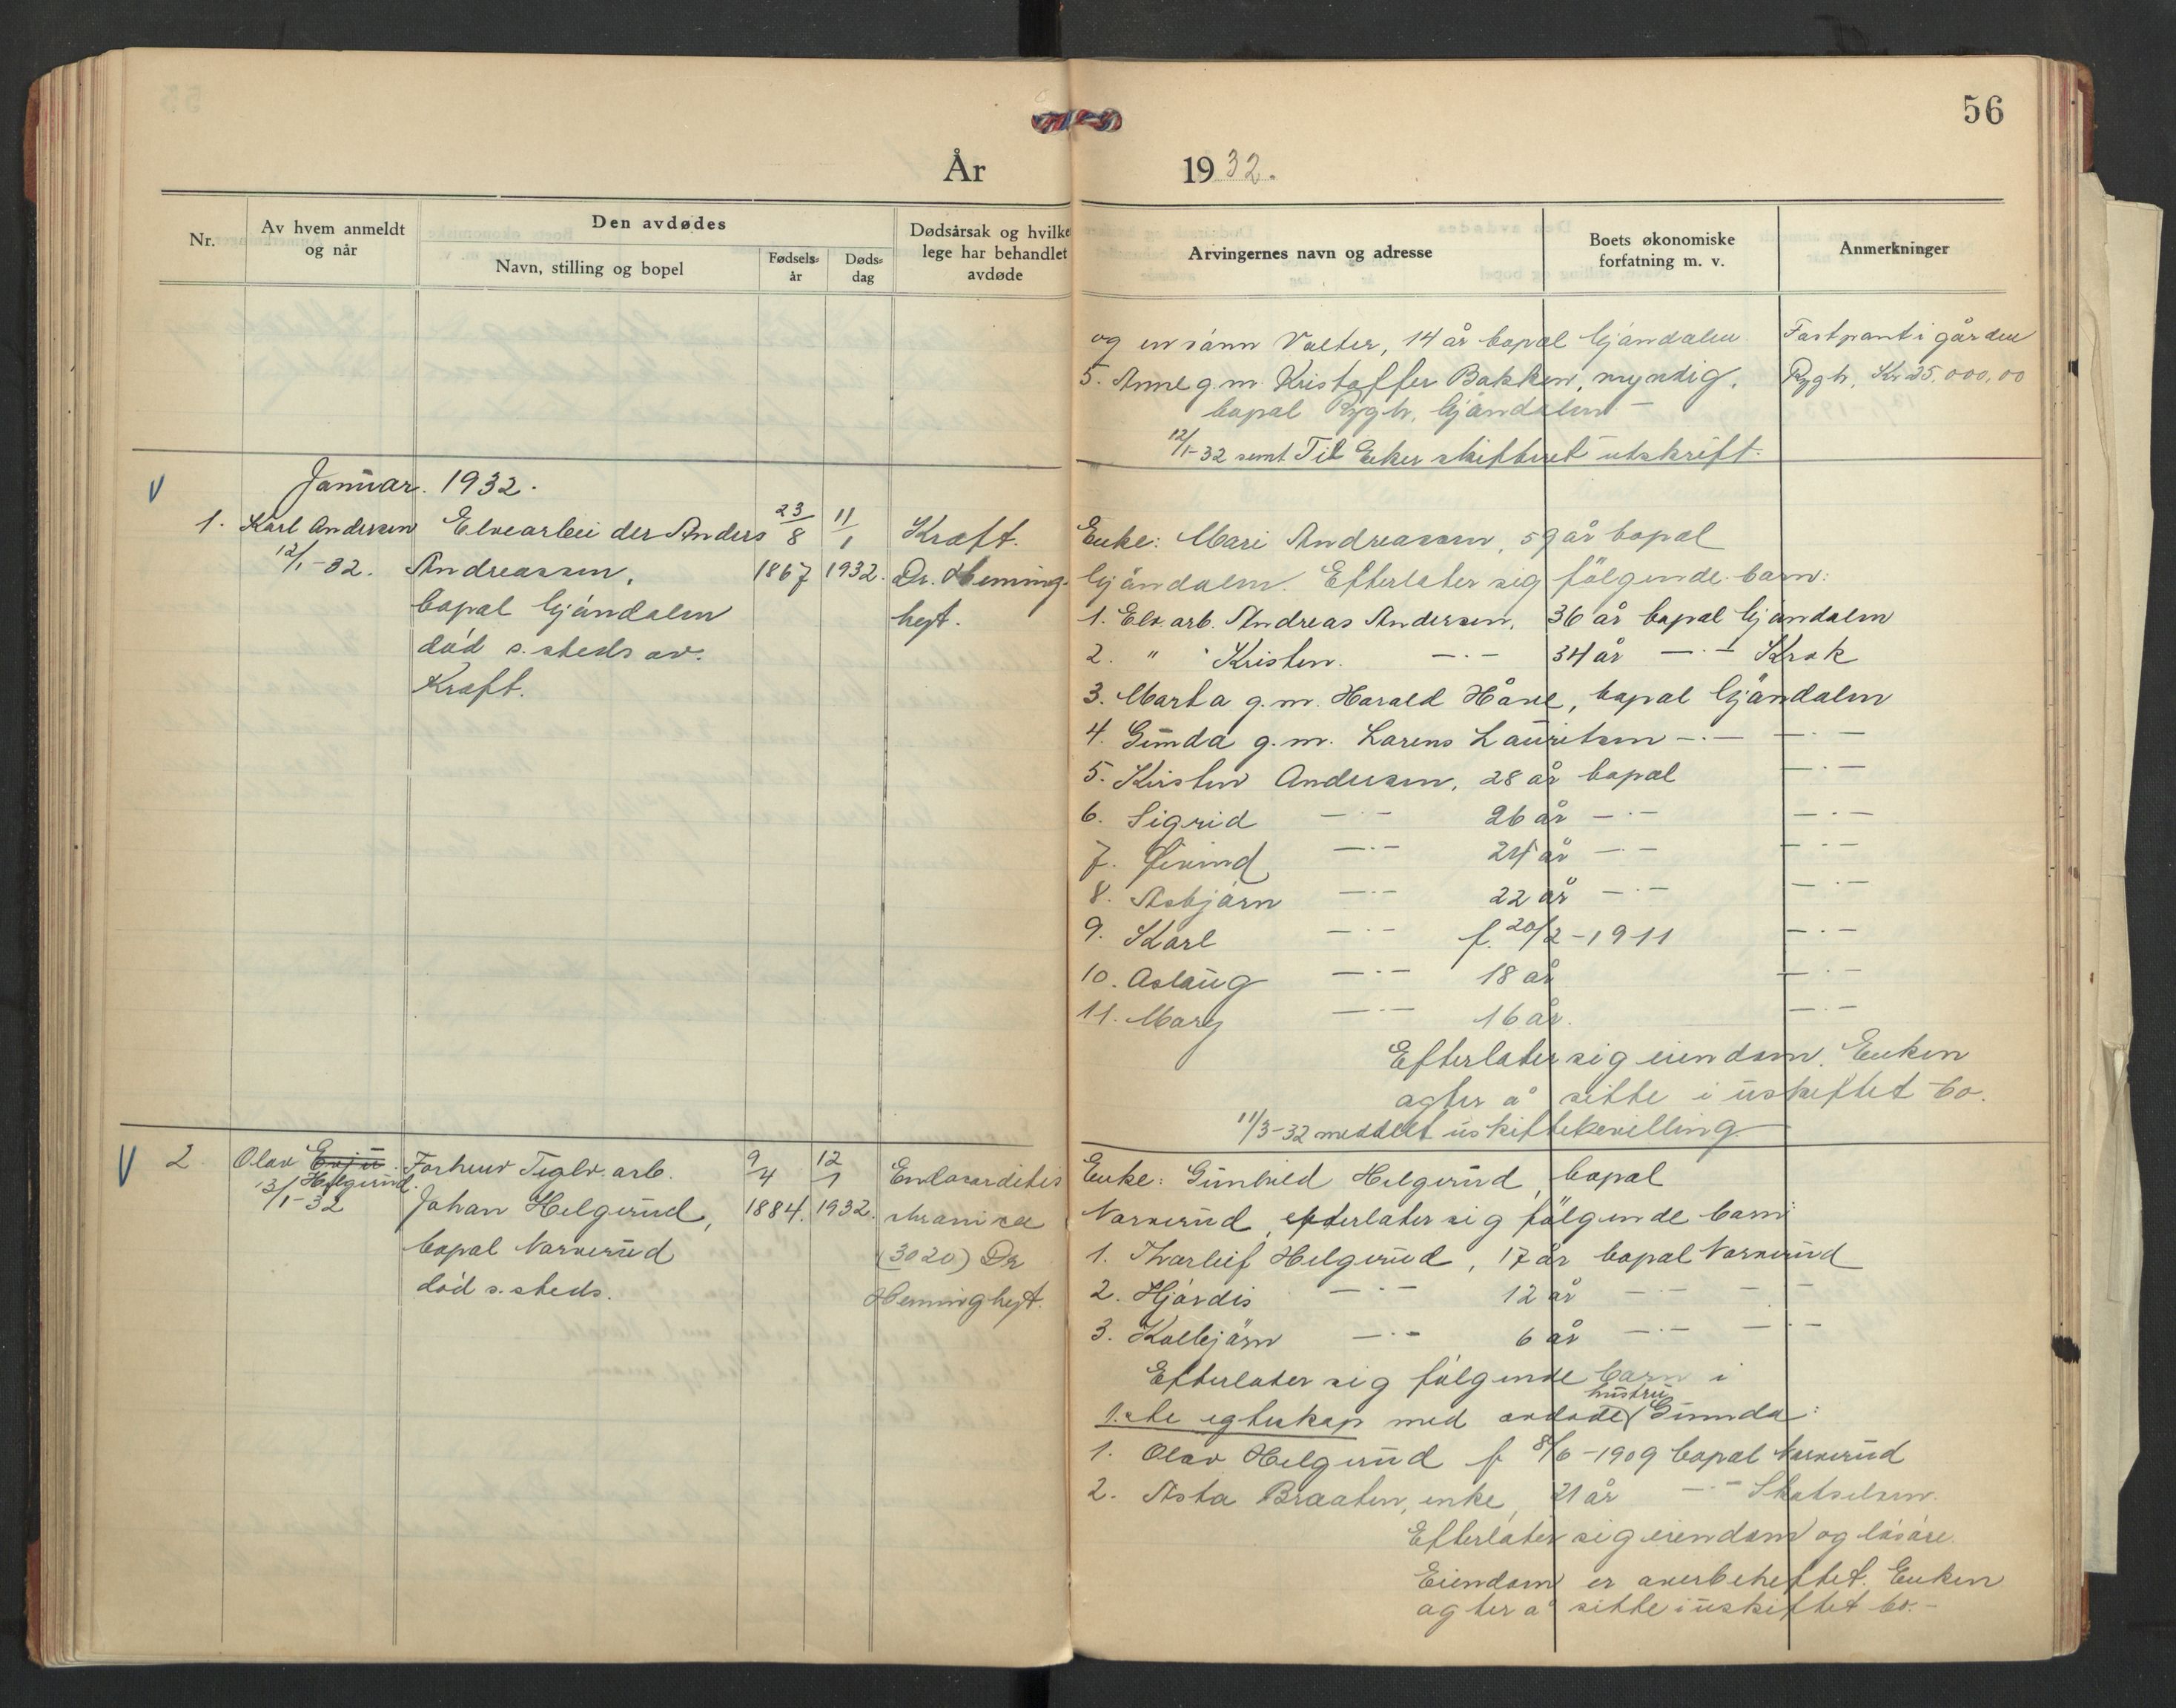 56
År 1932.
Nr.
Av hvem anmeldt
og når
Den avdødes
Navn, stilling og bopel
Fødsels-
år
Døds-
dag
Dødsårsak og hvilke
lege har behandlet
avdøde
Arvingernes navn og adresse
Boets økonomiske
forfatning m. v.
Anmerkninger
og en sønn Valter, 14 år bopæl Gjöndalen
Fastpant i gården
5. Anne g. m. Kristoffer Bakken, myndig,
Rygh, Kr 25.000,00
bopæl Rygh, Gjöndalen –
12/1-32 sent Til Eeker skifteret utskrift.
Januar. 1932.
V
1. Karl Andersen
12/1-32.
Elvearbeider Anders
Andreassen,
bopæl Gjöndalen
död s. steds av.
Kræft.
23/8
1867
11/1
1932.
Kræft.
Dr. Heming-
hyt.
Enke: Mari Andreassen, 59 år bopæl
Gjöndalen. Efterlater sig fölgende barn:
1. Elv. arb. Andreas Andersen, 36 år bopæl Gjöndalen
2. " Kristen. —·— 34 år —·— Krok
3. Marta g. m. Harald Håve, bopæl Gjöndalen
4. Gunda g. m. Lorens Lauritsen —·— —·—
5. Kirsten Andersen, 28 år bopæl —·—
6. Sigrid —·— 26 år —·— —·—
7. Øivind —·— 24 år —·— —·—
8. Asbjørn —·— 22 år —·— —·—
9. Karl —·— f. 20/2-1911 —·—
10. Aslaug —·— 18 år —·—
11. Mary —·— 16 år. —·—
Efterlater sig eiendom. Enken
agter å sitte i uskiftet bo.
11/3-32 meddelt uskiftebevilling
V
2 Olav Evju
Helgerud.
13/1-32
Forhenv Teglv. arb.
Johan Helgerud,
bopæl Narverud
död s. steds.
9/4
1884.
12/1
1932.
Endocarditis
chronica
(3020) Dr
Heminghyt.
Enke: Gunhild Helgerud, bopæl
Narverud, efterlater sig fölgende barn:
1. Thorleif Helgerud, 17 år bopæl Narverud
2. Hjördis —·— 12 år —·— —·—
3. Kolbjörn —·— 6 år —·— —·—
Efterlater sig fölgende barn i
1.ste egteskap med avdöde hustru Gunnda:
1. Olav Helgerud f 8/6-1909 bopæl Narverud
2. Asta Braaten, enke, 21 år —·— Skotselven.
Efterlater sig eiendom og lösöre.
Eiendom er overbeheftet. Enken
agter å sitte i uskiftet bo. –